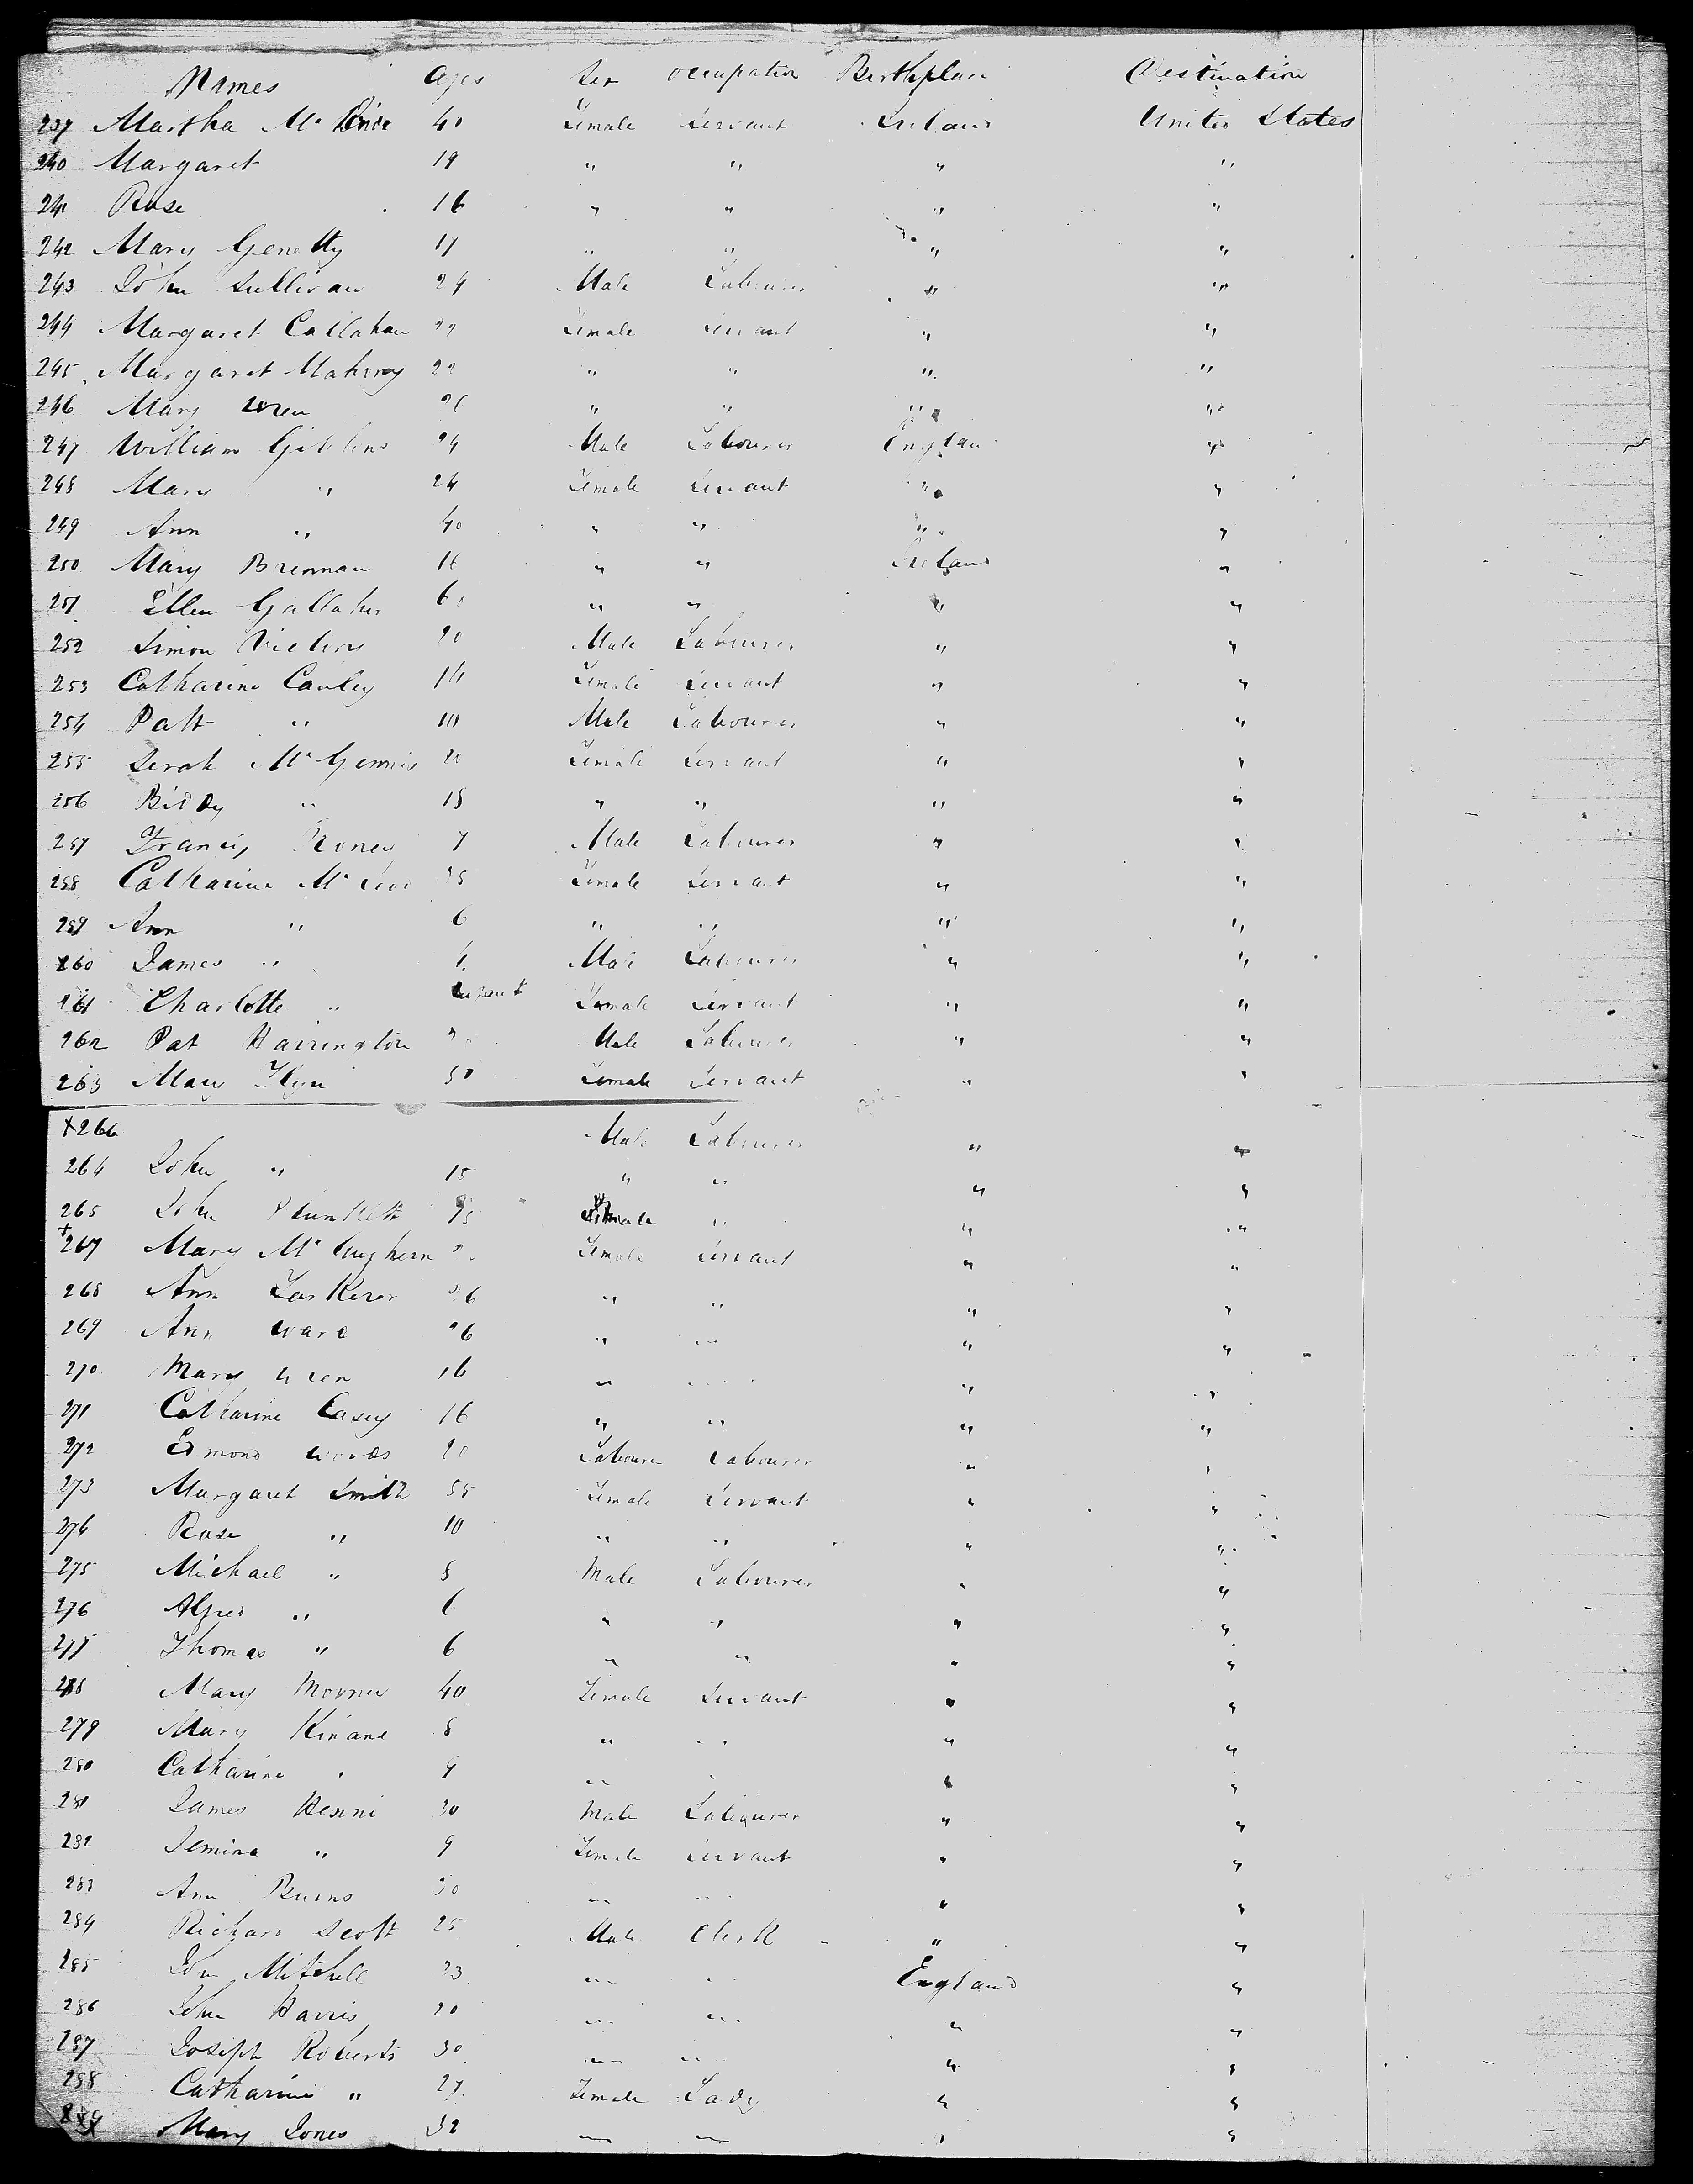 Names Ages Sex Occupation Birthplace Destination
237 Martha Mc 40 Female Servant Ireland United States
240 Margaret 19 " " " "
241 Rose 16 " " " "
242 Mary Genetty 11 " " " "
243 John Sullivan 24 Male Labourer " "
244 Margaret Callahan Female Servant " "
245 Margaret Mahony 22 " " " "
246 Mary Wren " " " "
247 William Gibbins 24 Male Labourer England "
248 Mary " 24 Female Servant " "
249 Ann " 40 " " " "
250 Mary Brennan 16 " " Ireland "
251 Ellen Gallaher " " " "
252 Simon Victory 20 Male Labourer " "
253 Catharine Cauley 14 Female Servant " "
254 Patt " 10 Male Labourer " "
255 Serah Mc Gennis 20 Female Servant " "
256 Biddy " 18 " " " "
257 Francis Roney 7 Male Labourer " "
258 Catharine Mc Female Servant " "
259 Ann " 6 " " " "
260 James " Male Labourer " "
261 Charlotte " Infant Female Servant " "
262 Pat Harrington Male Labourer " "
263 Mary Flyn 50 Female Servant " "
+266 Male Labourer " "
264 John " 15 " " " "
265 John Plunkett " " "
+267 Mary Mc Female Servant " "
268 Ann " " " "
269 Ann Ward " " " "
270 Mary Wren 16 " " " "
271 Catharine Casey 16 " " " "
272 Edmond Woods 20 Labourer Labourer " "
273 Margaret Smith 55 Female Servant " "
274 Rose " 10 " " " "
275 Michael " 8 Male Labourer " "
276 Alfred " " " " "
277 Thomas " 6 " " " "
278 Mary 40 Female Servant " "
279 Mary Kinane 8 " " " "
280 Catharine " 9 " " " "
281 James Henni 30 Male Labourer " "
282 Jemima " 9 Female Servant " "
283 Ann Burns 30 " " " "
284 Richard Scott 25 Male Clerk " "
285 John Mitchell 23 " " England "
286 John Harris 20 " " " "
287 Joseph Roberts 30 " " " "
288 Catharine " 27 Female Lady " "
289 Mary Jones 32 " " " "